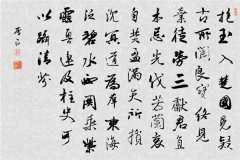 抱玉入楚國見疑
古所聞良寶終見
棄徒勞三獻君直
木忌先伐芳蘭哀
自焚盈滿天所損
沉冥道為群東海
泛碧水西關乘紫
雲魯連及柱史可
以躡清芬